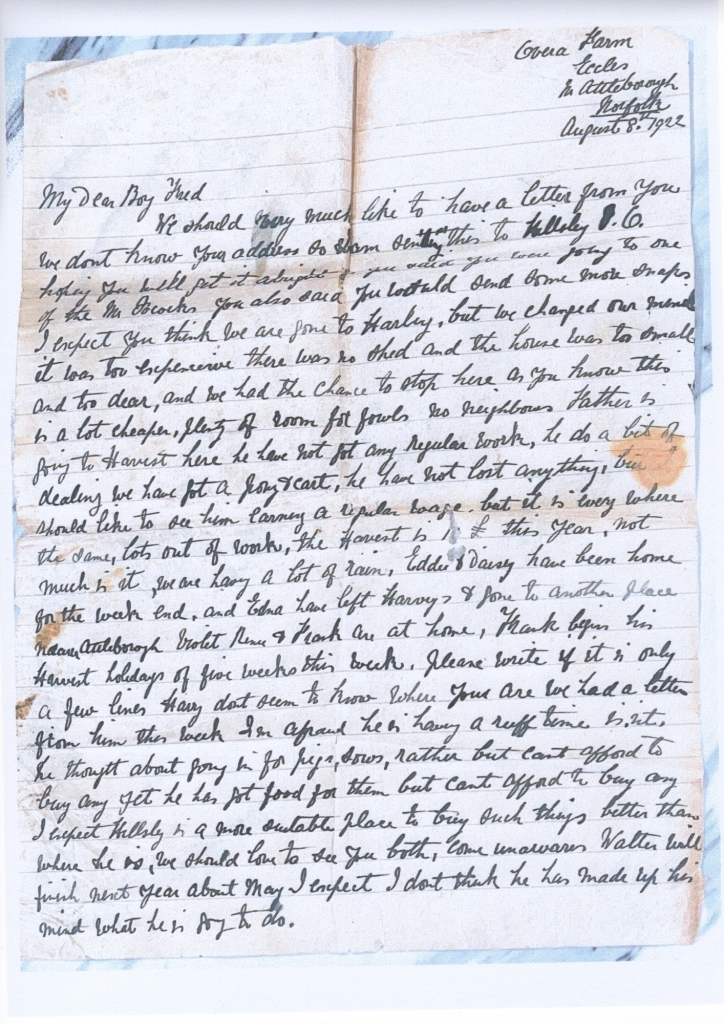 Overa Farm
Eccles
Nr Attleborough
Norfolk
August 8th 1922
My Dear Boy Fred
We should very much like to have a letter from you
we dont know your address so I am sending this to Hillsley P.O.
hoping you will get it alright you said you were going to one
of the you also said you would send some more snaps
I expect you think we are gone to Harling, but we changed our mind
it was too expencive there was no shed and the house was too small
and too dear, and we had the chance to stop here as you know this
is a lot cheaper, plenty of room for fowls no neighbours Father is
going to Harvest here he have not got any regular work, he do a bit of
dealing we have got a pony & cart, he have not lost anything, but I
should like to see him earning a regular wage. but it is every where
the same, lots out of work, the Harvest is £ this year, not
much is it, we are having a lot of rain, Eddie & Daisy have been home
for the week end, and Edna have left Harveys & gone to another place
Attleborough Violet Rene & Frank are at home, Frank begins his
Harvest holidays of five weeks this week. please write if it is only
a few lines Harry dont seem to know where you are we had a letter
from him this week I'm afraid he is having a ruff time is it.
he thought about going in for pigs, sows, rather but cant afford to
buy any yet he has got food for them but cant afford to buy any
I expect Hillsly is a more suitable place to buy such things better than
where he is, we should love to see you both, come unawares Walter will
finish next year about May I expect I dont think he has made up his
mind what he is going to do.